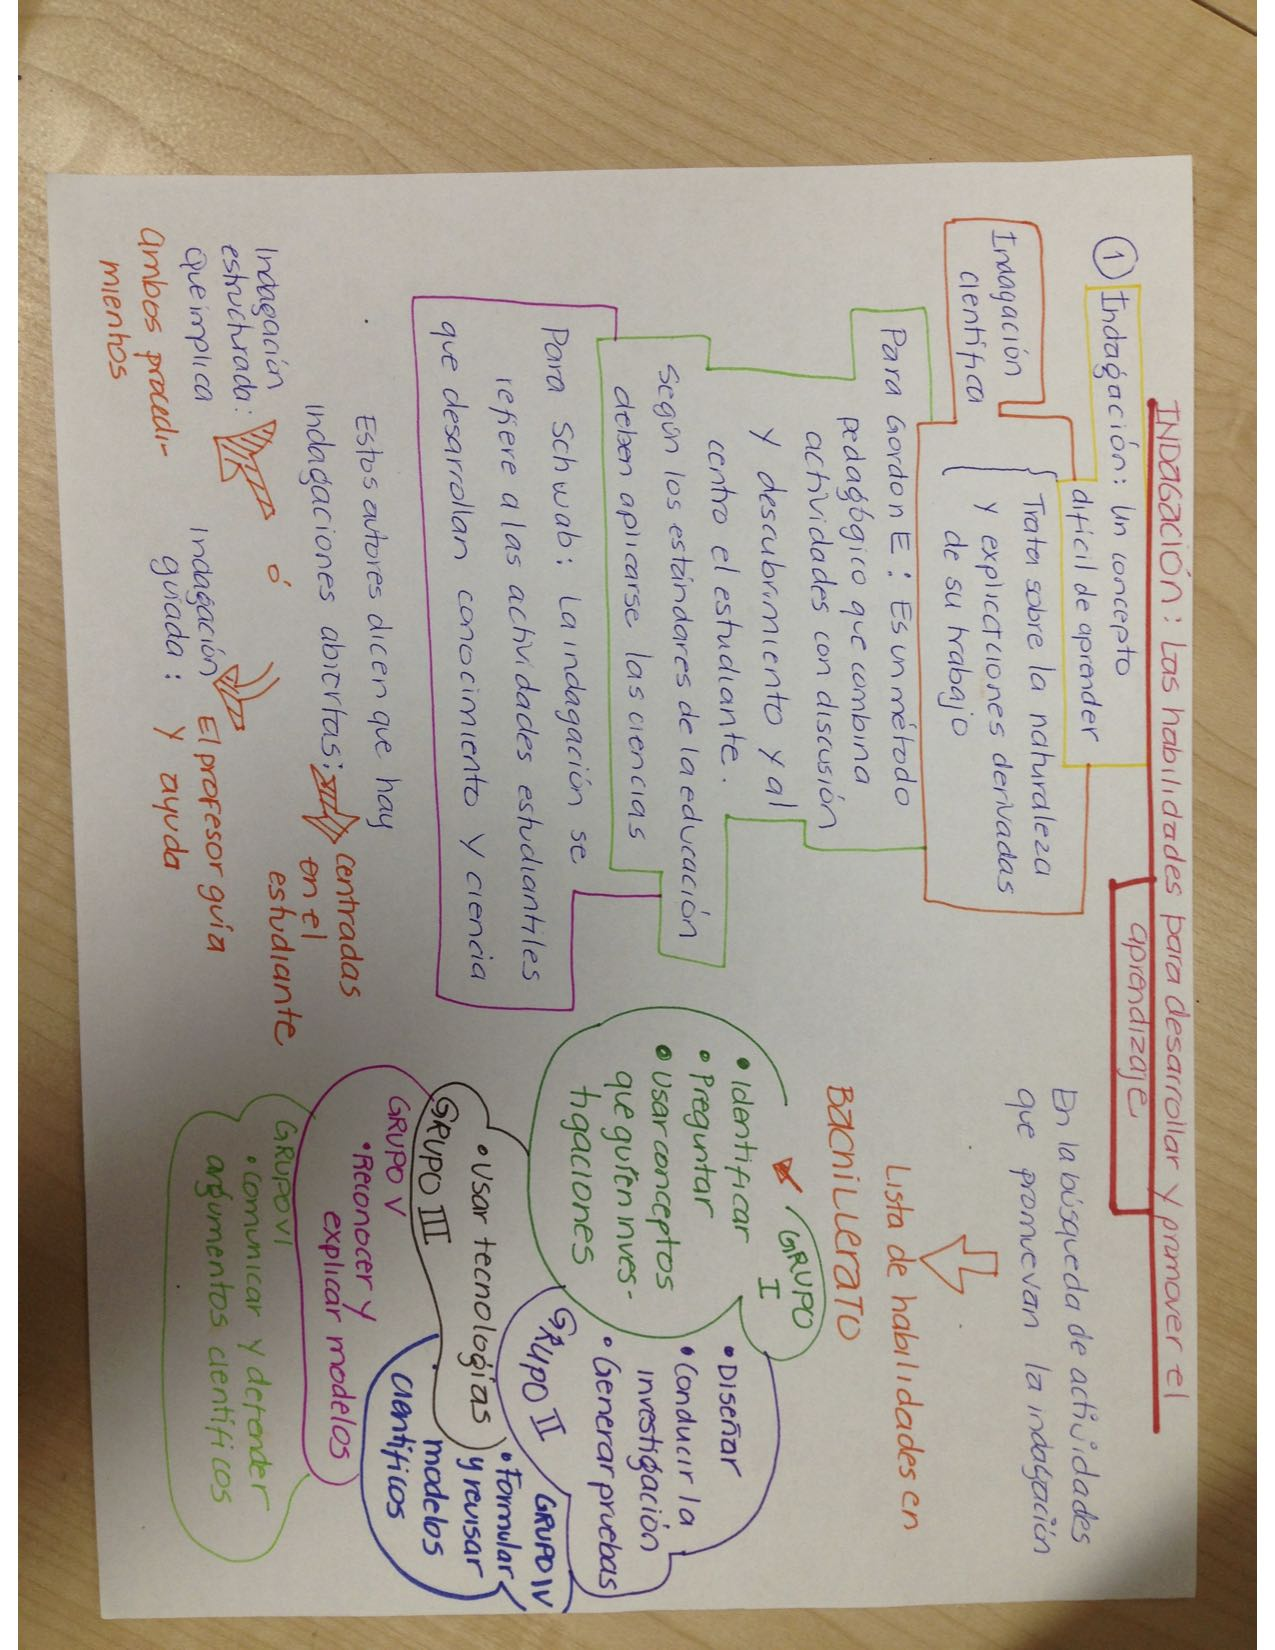 INDAGACIÓN: Las habilidades para desarrollar y promover el
aprendizaje
① Indagación: Un concepto
difícil de aprender
Indagación
científica
Trata sobre la naturaleza
y explicaciones derivadas
de su trabajo
Para Gordon E: Es un método
pedagógico que combina
actividades con discusión
y descubrimiento y al
centro el estudiante.
según los estándares de la educación
deben aplicarse las ciencias
Para Schwab: La indagación se
refiere a las actividades estudiantiles
que desarrollan conocimiento y ciencia
Estos autores dicen que hay
indagaciones abiertas:
centradas
en el
estudiante
ó
Indagación
estructurada:
que implica
ambos procedi-
mientos
Indagación
guiada:
El profesor guía
y ayuda
En la búsqueda de actividades
que promuevan la indagación
Lista de habilidades en
BACHILLERATO
GRUPO
I
• Identificar
• Preguntar
• Usar conceptos
que guíen inves-
tigaciones
• Diseñar
• Conducir la
investigación
• Generar pruebas
GRUPO II
• Usar tecnologías
GRUPO III
GRUPO IV
• Formular
y revisar
modelos
científicos
GRUPO V
• Reconocer y
explicar modelos
GRUPO VI
• comunicar y defender
argumentos científicos